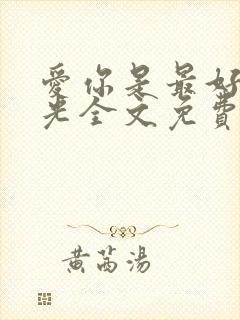 愛你是最好
光全文免費
黃芮湯